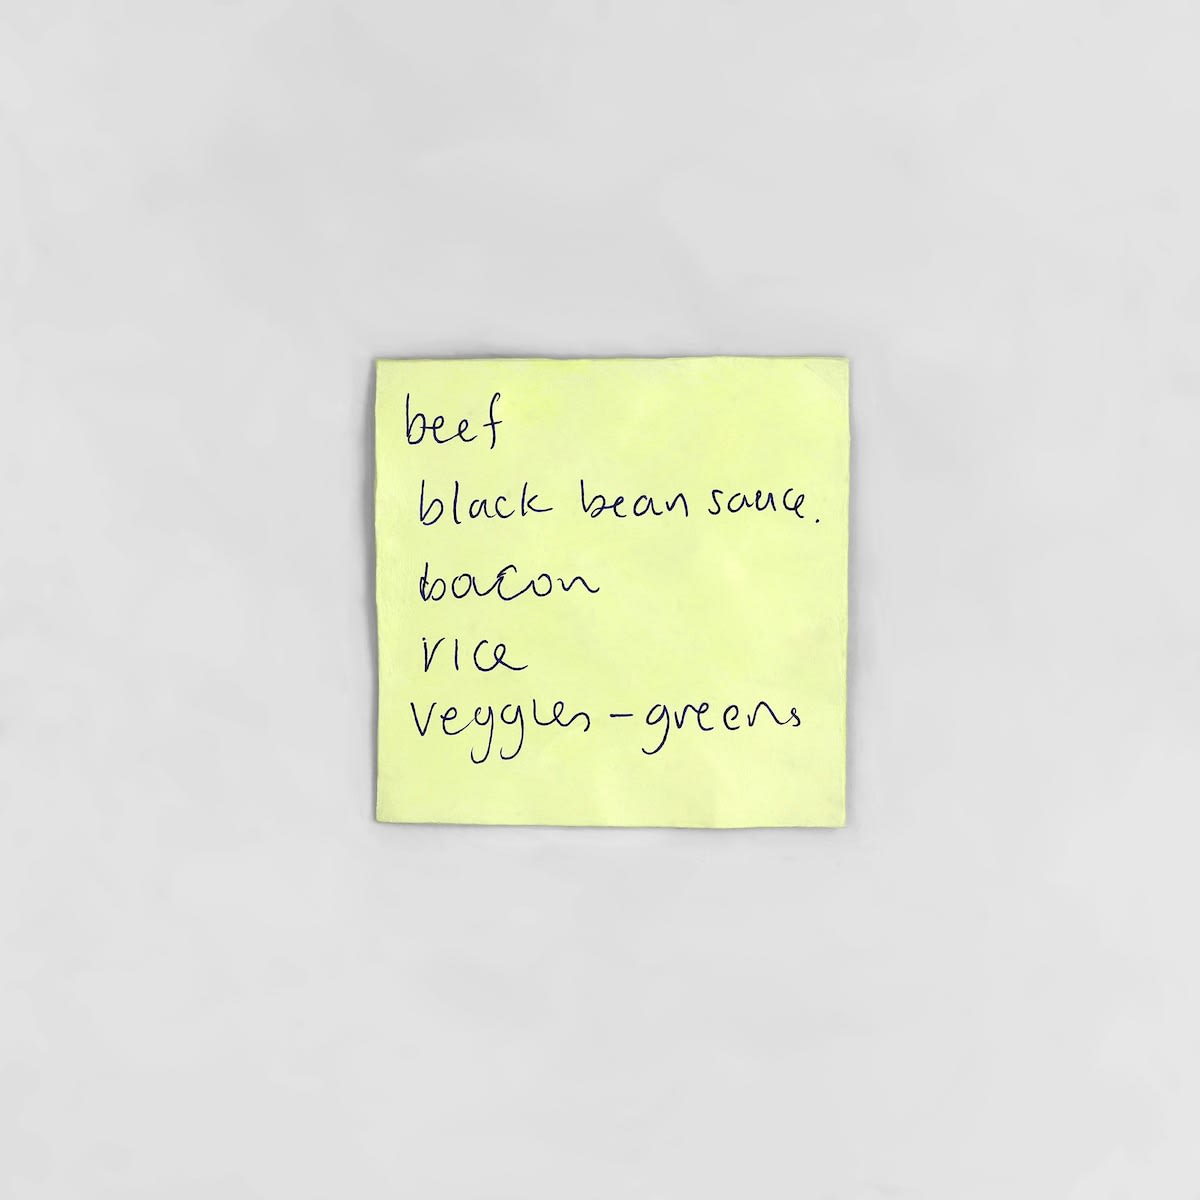 beef
black bean sauce.
bacon
rice
veggies - greens